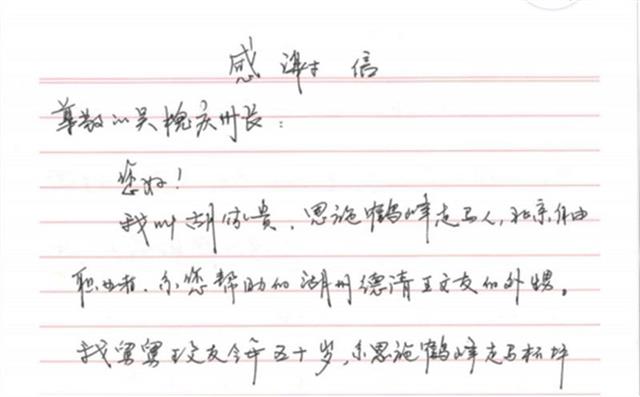 感谢信
尊敬的吴槐庆州长：
您好！
我叫胡家贵，恩施鹤峰走马人，北京自由
职业者，系您帮助的湖州德清王文友的外甥。
我舅舅王文友今年五十岁，系恩施鹤峰走马杉坪